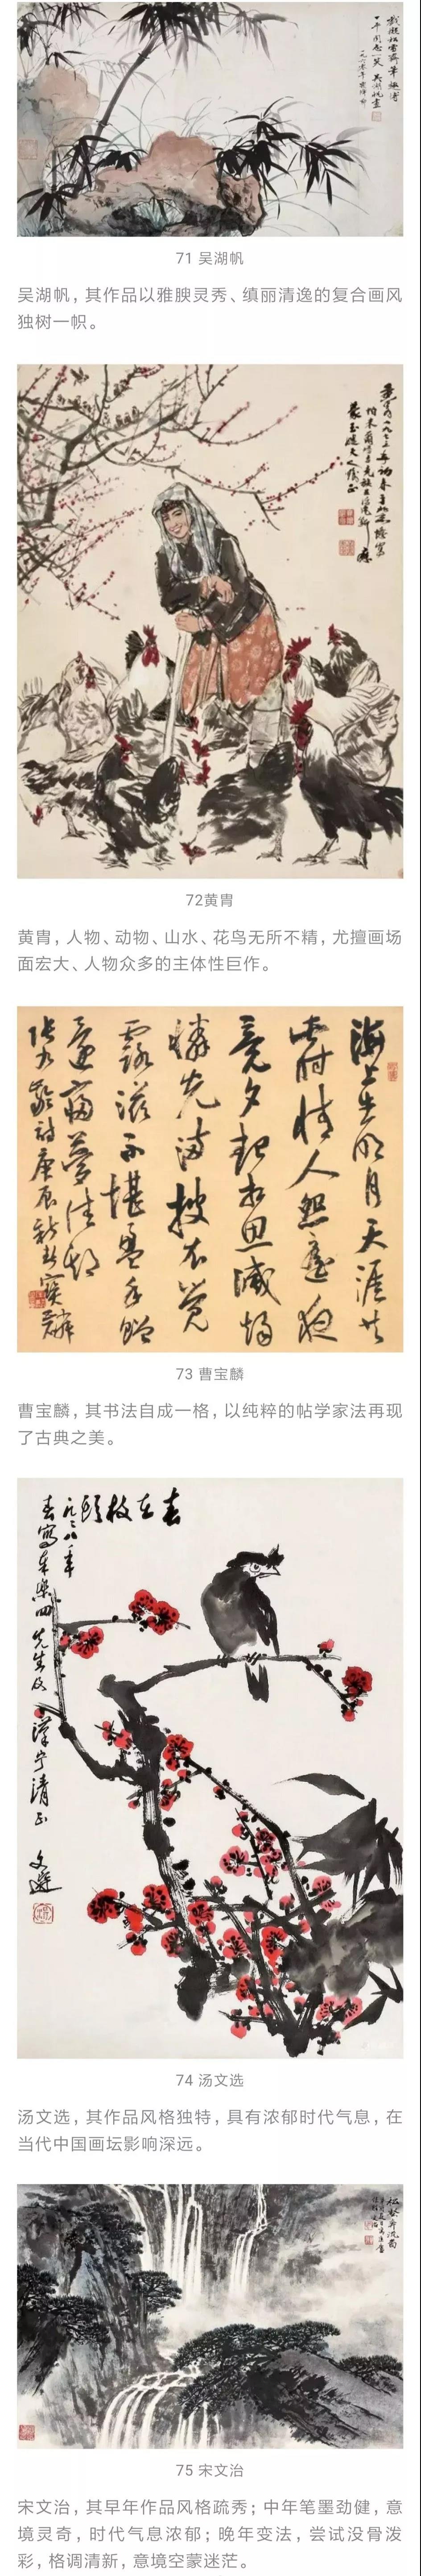 71 吴湖帆
吴湖帆，其作品以雅腴灵秀、缜丽清逸的复合画风
独树一帜。
72黄胄
黄胄，人物、动物、山水、花鸟无所不精，尤擅画场
面宏大、人物众多的主体性巨作。
海上生明月天涯共
此时情人怨遥夜
竟夕起相思灭烛
怜光满披衣觉
露滋不堪盈手赠
还寝梦佳期
张九龄诗庚辰新秋宝麟
73 曹宝麟
曹宝麟，其书法自成一格，以纯粹的帖学家法再现
了古典之美。
春在枝头
74 汤文选
汤文选，其作品风格独特，具有浓郁时代气息，在
当代中国画坛影响深远。
75 宋文治
宋文治，其早年作品风格疏秀；中年笔墨劲健，意
境灵奇，时代气息浓郁；晚年变法，尝试没骨泼
彩，格调清新，意境空蒙迷茫。